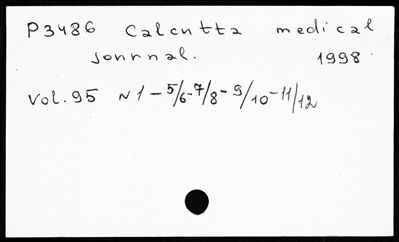 P3486 Calcutta medical
journal. 1998
Vol. 95 N 1 - 5/6 - 7/8 - 9/10 - 11/12